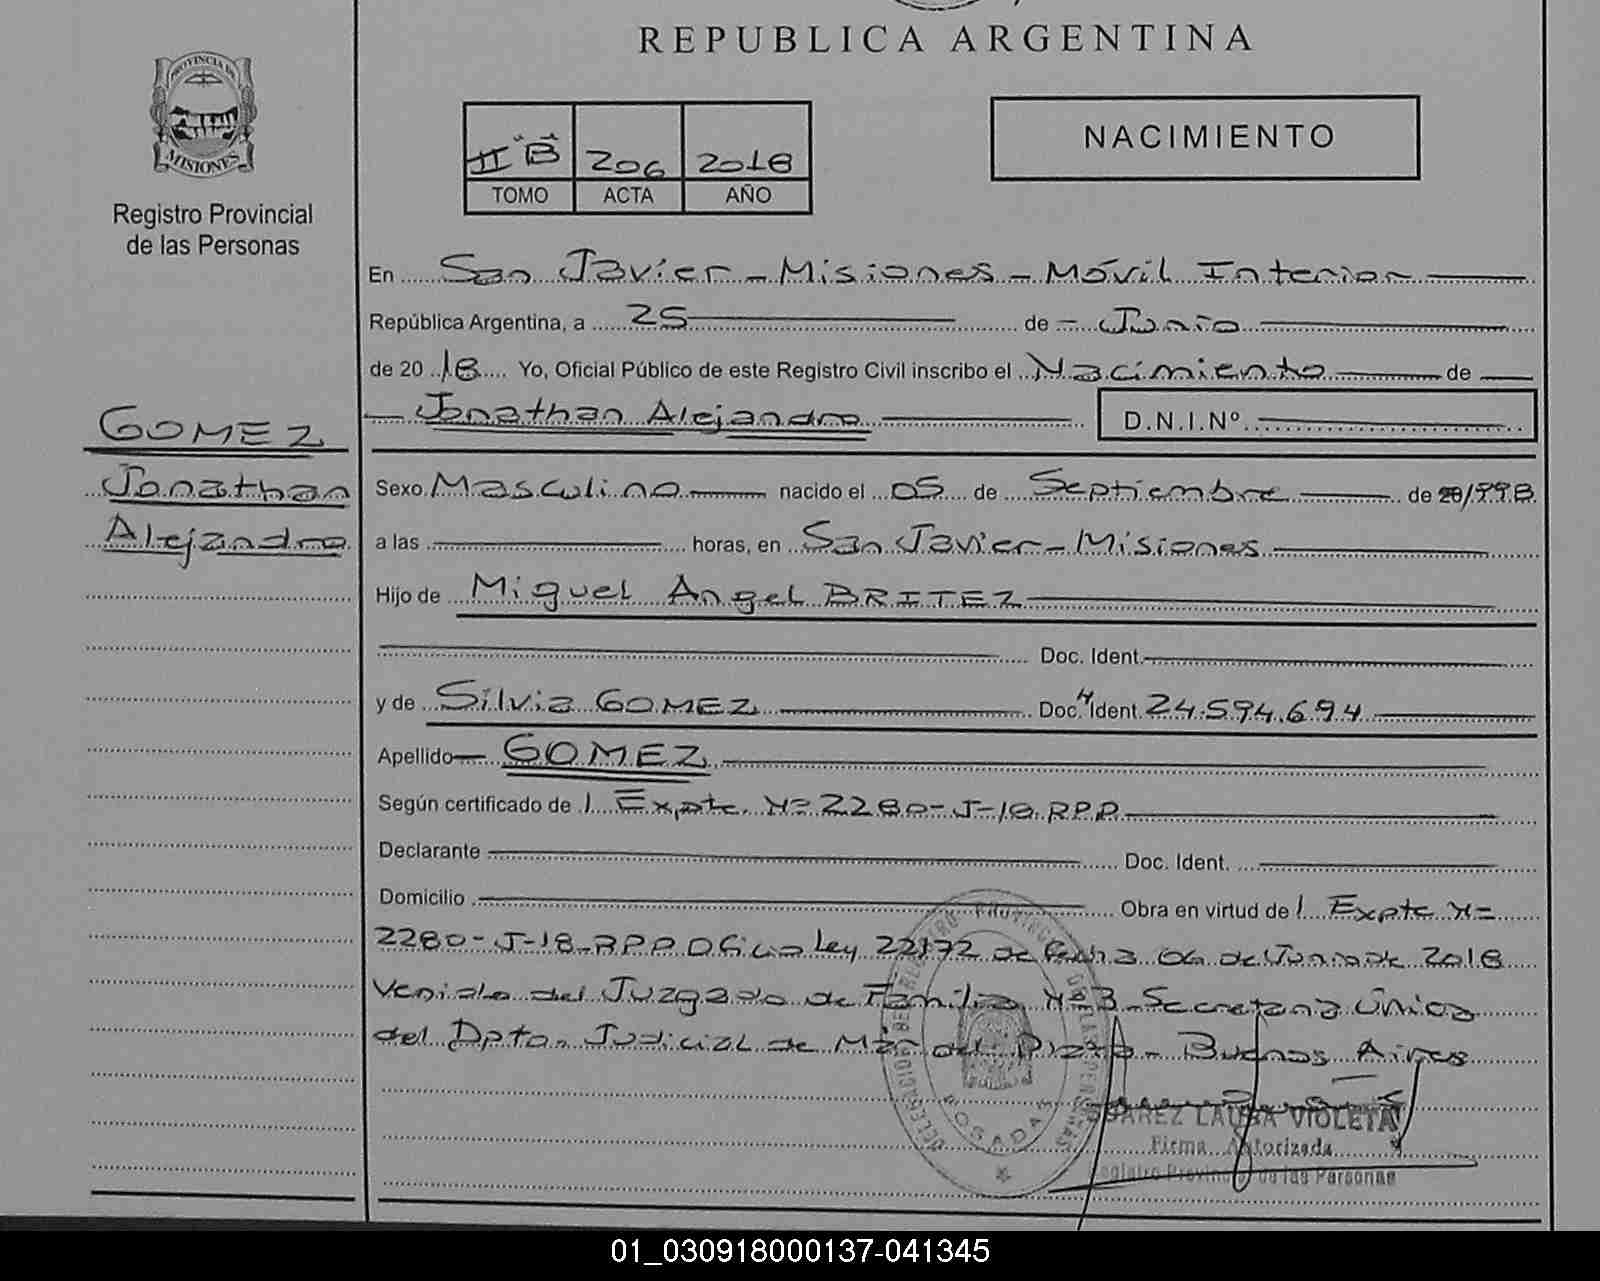 REPUBLICA ARGENTINA
PROVINCIA DE
MISIONES
Registro Provincial
de las Personas
II "B" 206 2018
TOMO ACTA AÑO
NACIMIENTO
En San Javier - Misiones - Móvil Interior
República Argentina, a 25 de Junio
de 2018 Yo, Oficial Público de este Registro Civil inscribo el Nacimiento de
Jonathan Alejandro D.N.I.Nº
GOMEZ
Jonathan
Alejandro
Sexo Masculino nacido el 05 de Septiembre de 1998
a las horas, en San Javier - Misiones
Hijo de Miguel Angel BRITEZ
Doc. Ident.
y de Silvia GOMEZ Doc. Ident. 24.594.694
Apellido GOMEZ
Según certificado de 1 Expte Nº 2280-J-18 RPP
Declarante Doc. Ident.
Domicilio Obra en virtud de 1 Expte Nº
2280-J-18-RPP Oficio Ley 22172 de fecha 06 de Junio de 2018
Venido del Juzgado de Familia Nº 3 Secretaria Única
del Dpto. Judicial de Mar del Plata - Buenos Aires
DELEGACION DEL REGISTRO PROVINCIAL DE LAS PERSONAS
POSADAS
SUAREZ LAURA VIOLETA
Firma Autorizada
Registro Provincial de las Personas
01_030918000137-041345